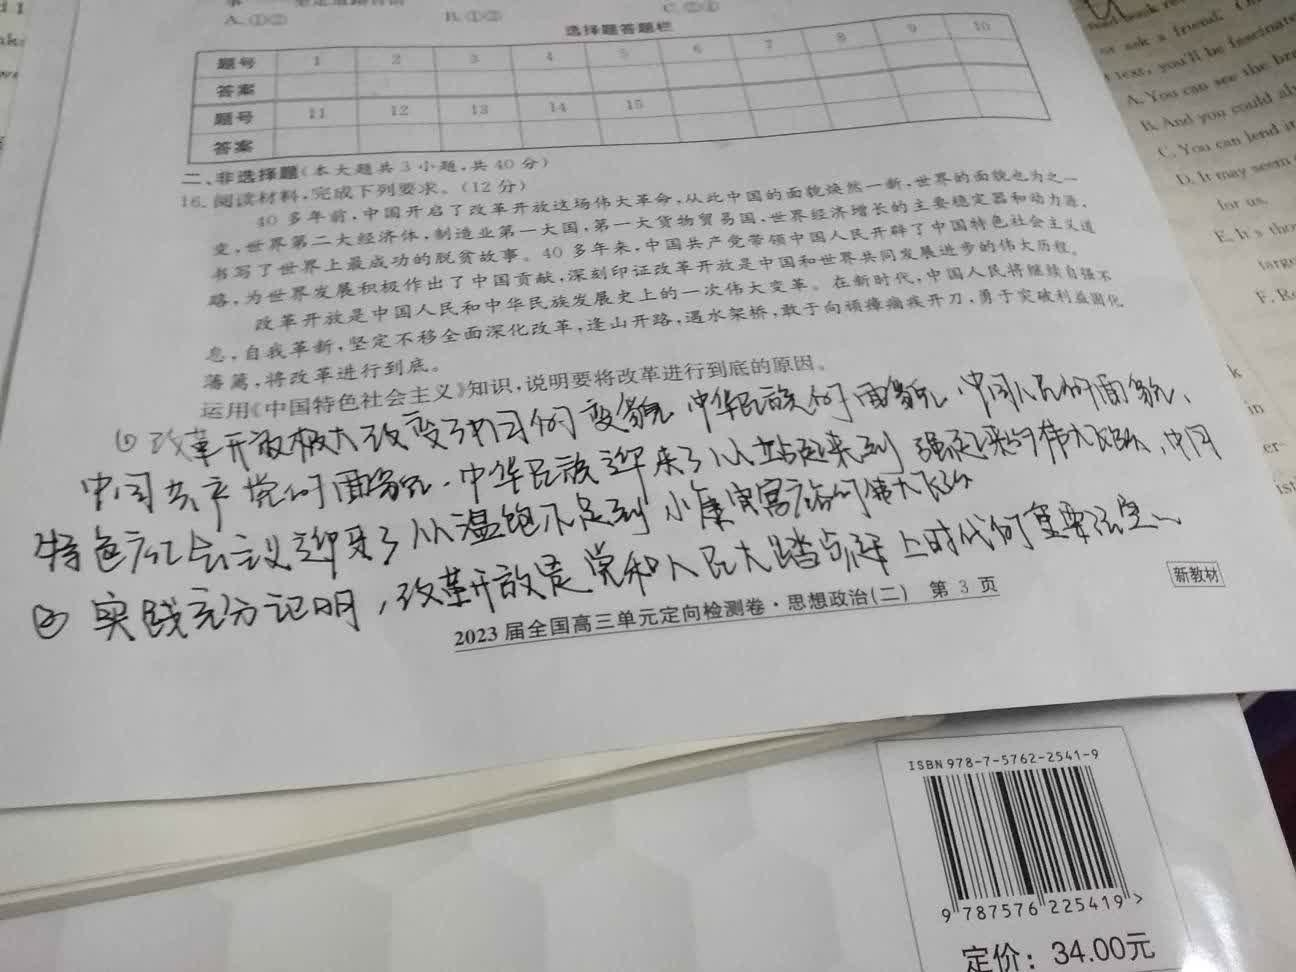 A.①②
B.①③
C.②④
选择题答题栏
题号 1 2 3 4 5 6 7 8 9 10
答案
题号 11 12 13 14 15
答案
二、非选择题(本大题共3小题,共40分)
16.阅读材料,完成下列要求。(12分)
40多年前,中国开启了改革开放这场伟大革命,从此中国的面貌焕然一新,世界的面貌也为之一
变,世界第二大经济体,制造业第一大国,第一大货物贸易国,世界经济增长的主要稳定器和动力源,
书写了世界上最成功的脱贫故事。40多年来,中国共产党带领中国人民开辟了中国特色社会主义道
路,为世界发展积极作出了中国贡献,深刻印证改革开放是中国和世界共同发展进步的伟大历程。
改革开放是中国人民和中华民族发展史上的一次伟大变革。在新时代,中国人民将继续自强不
息,自我革新,坚定不移全面深化改革,逢山开路,遇水架桥,敢于向顽瘴痼疾开刀,勇于突破利益固化
藩篱,将改革进行到底。
运用《中国特色社会主义》知识,说明要将改革进行到底的原因。
① 改革开放极大改变了中国的面貌、中华民族的面貌、中国人民的面貌、
中国共产党的面貌.中华民族迎来了从站起来到强起来的伟大飞跃,中国
特色社会主义迎来了从温饱不足到小康富裕的伟大飞跃
② 实践充分证明,改革开放是党和人民大踏步赶上时代的重要法宝、
2023届全国高三单元定向检测卷·思想政治(二) 第3页
新教材
ISBN 978-7-5762-2541-9
9 787576 225419 >
定价:34.00元
read book
or ask a friend.
text, you'll be fascinate
A. You can see the
B. And you could
C. You can lend it
D. It may seem
for us.
E. It's
F.
k
in
er-